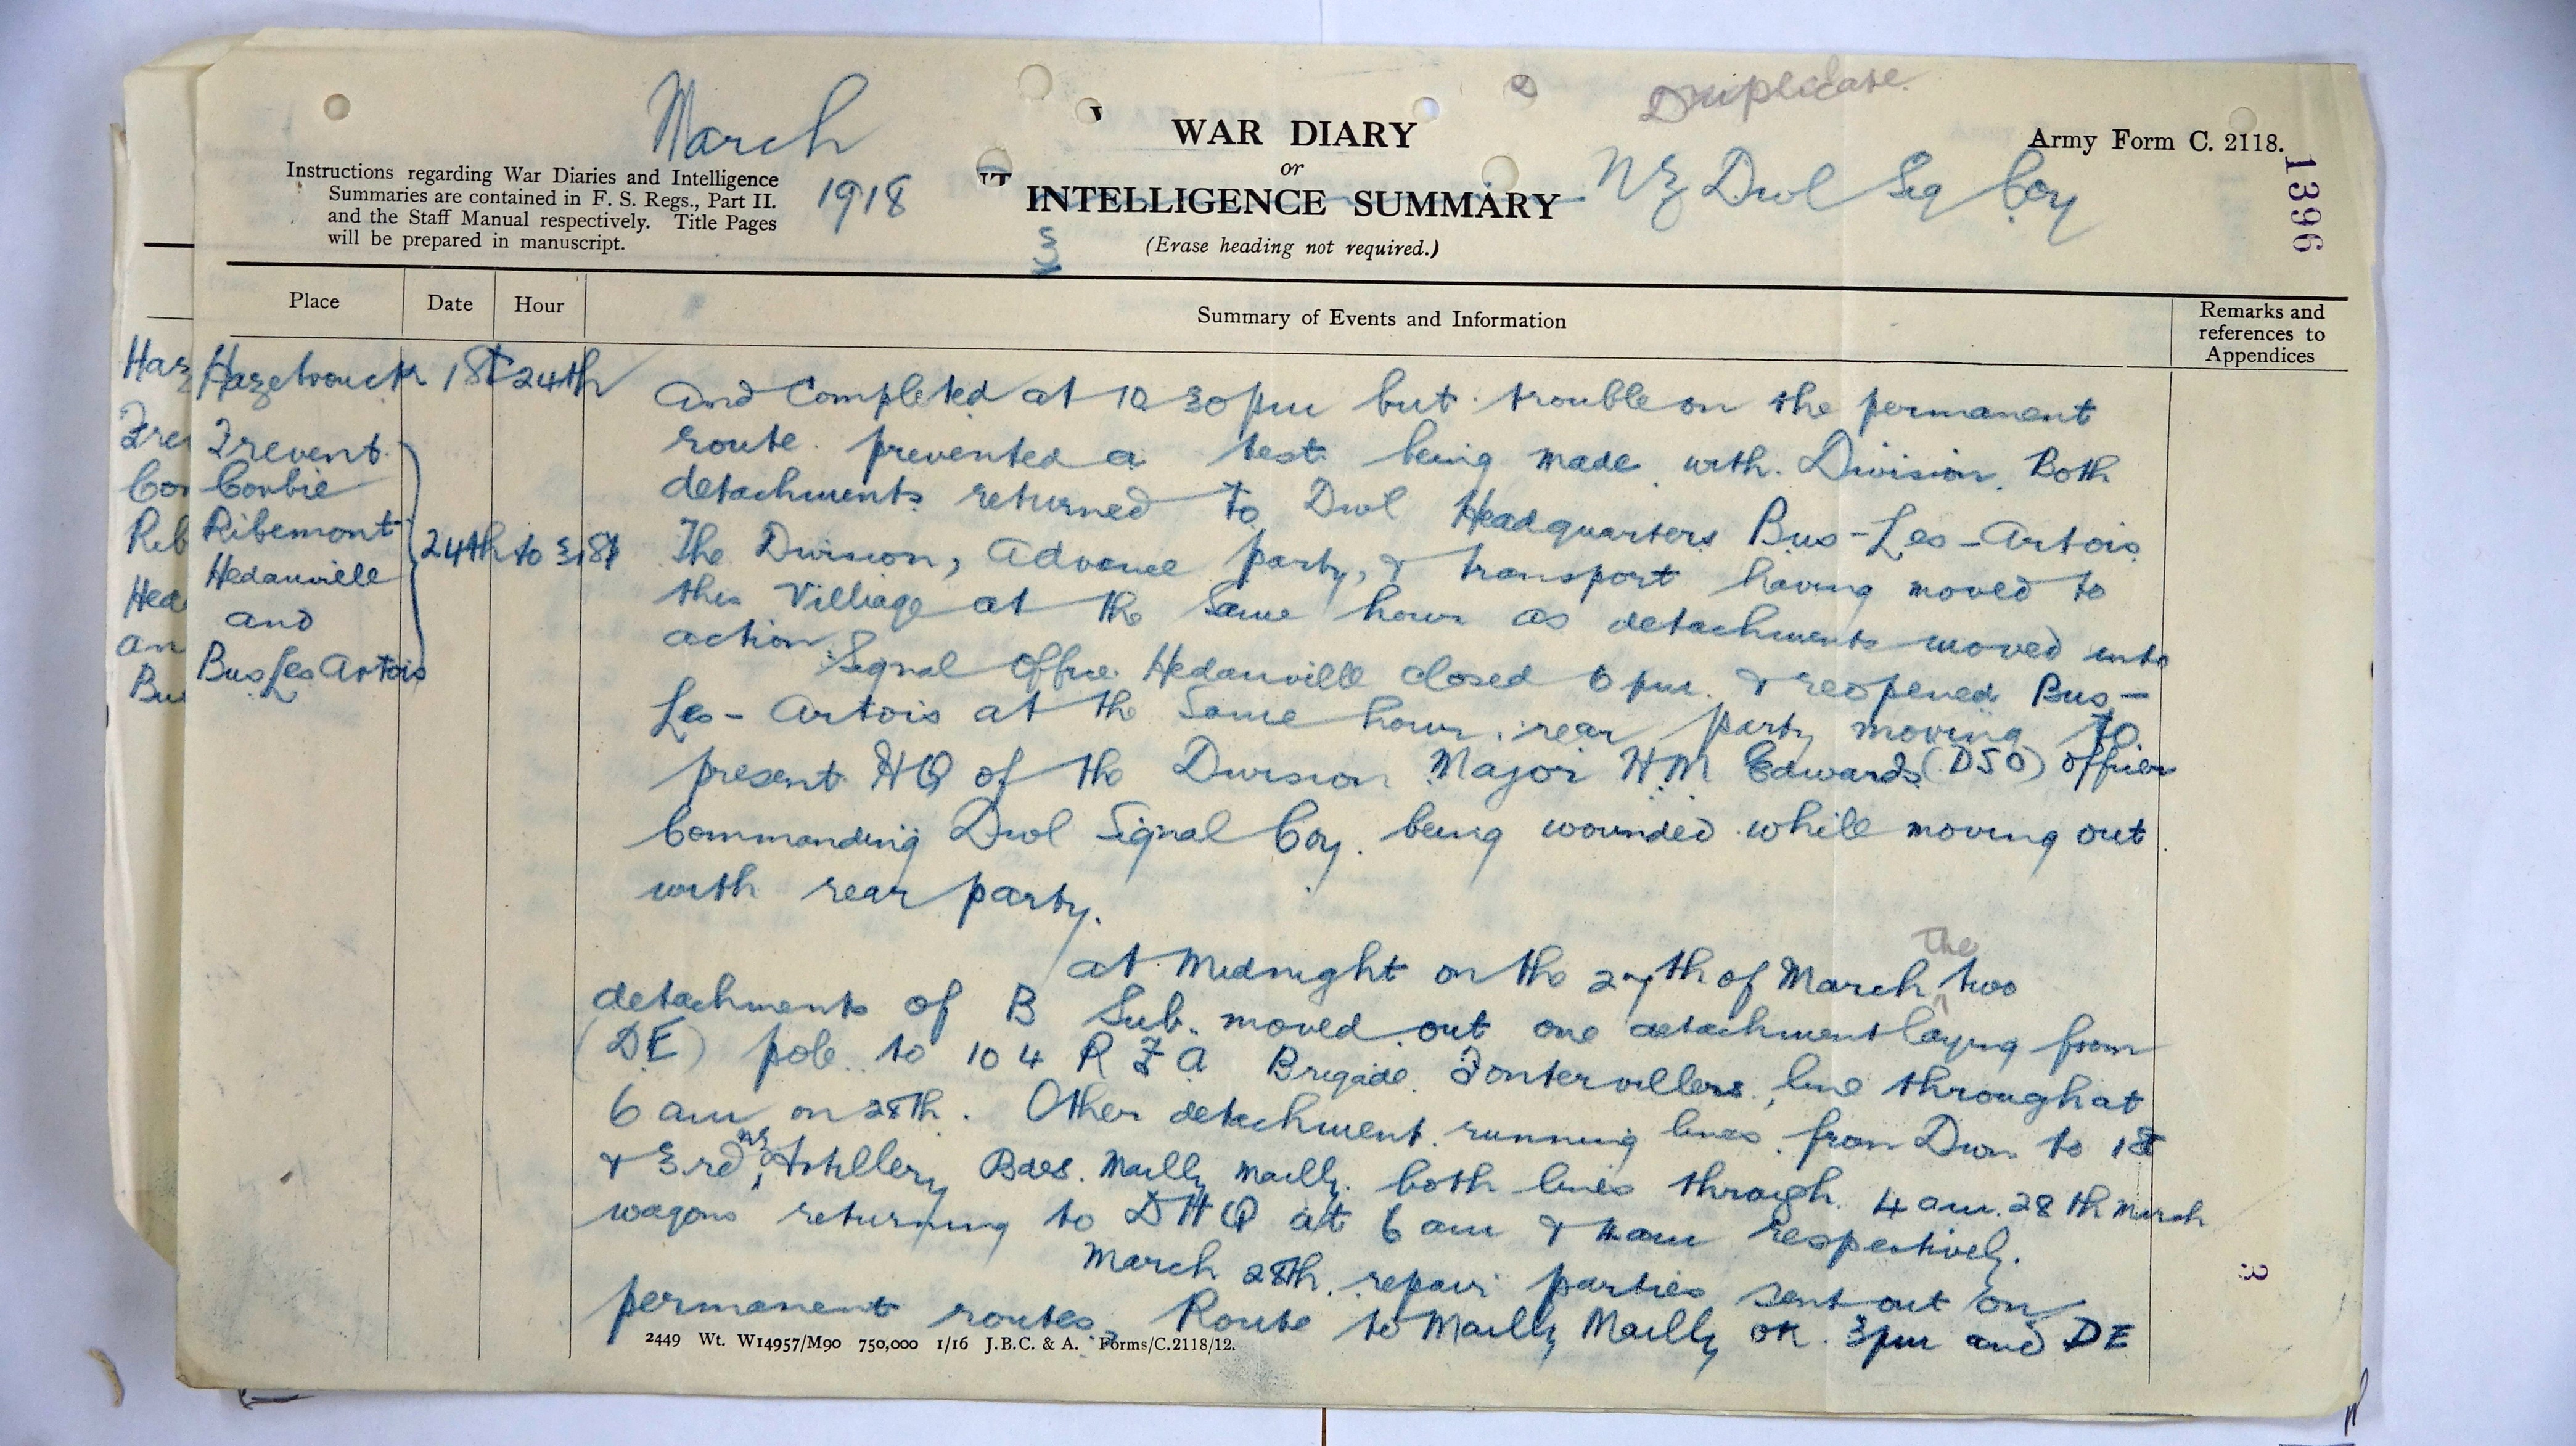 Duplicate.
March
1918
WAR DIARY
or
INTELLIGENCE SUMMARY
(Erase heading not required.)
Army Form C. 2118.
NZ Divl Sig Coy
1396
Instructions regarding War Diaries and Intelligence
Summaries are contained in F. S. Regs., Part II.
and the Staff Manual respectively. Title Pages
will be prepared in manuscript.
3
Place
Date
Hour
Summary of Events and Information
Remarks and
references to
Appendices
Haz
Fre
Cor
Rib
Hed
an
Bu
Hazebrouck 1st 24th
Frevent
Corbie
Ribemont
Hedauville
and
Bus Les Artois
24th to 31st
And Completed at 10 30 pm but trouble on the permanent
route prevented a test being made with Division. Both
detachments returned to Divl Headquarters Bus-Les-Artois
The Division, Advance party, & transport having moved to
this Villiage at the same hour as detachments moved into
action. Signal Office Hedauville closed 6 pm. & reopened Bus-
Les-Artois at the same hour, rear party moving to
present HQ of the Division Major H M Edwards (DSO) officer
Commanding Divl Signal Coy. being wounded while moving out
with rear party.
at Midnight on the 27th of March the two
detachments of B Sub. moved out one detachment laying from
(DE) pole to 104 R F A Brigade Fontervillers, line through at
6 am on 28th. Other detachment running lines from Divn to 1st
& 3rd NZ Artillery Bdes. Mailly Mailly. both lines through 4 am. 28th March
wagons returning to DHQ at 6 am & am respectively.
March 28th. repair parties sent out on
permanent routes. Route to Mailly Mailly OK. 3pm and DE
2449 Wt. W14957/M90 750,000 1/16 J.B.C. & A. Forms/C.2118/12.
3